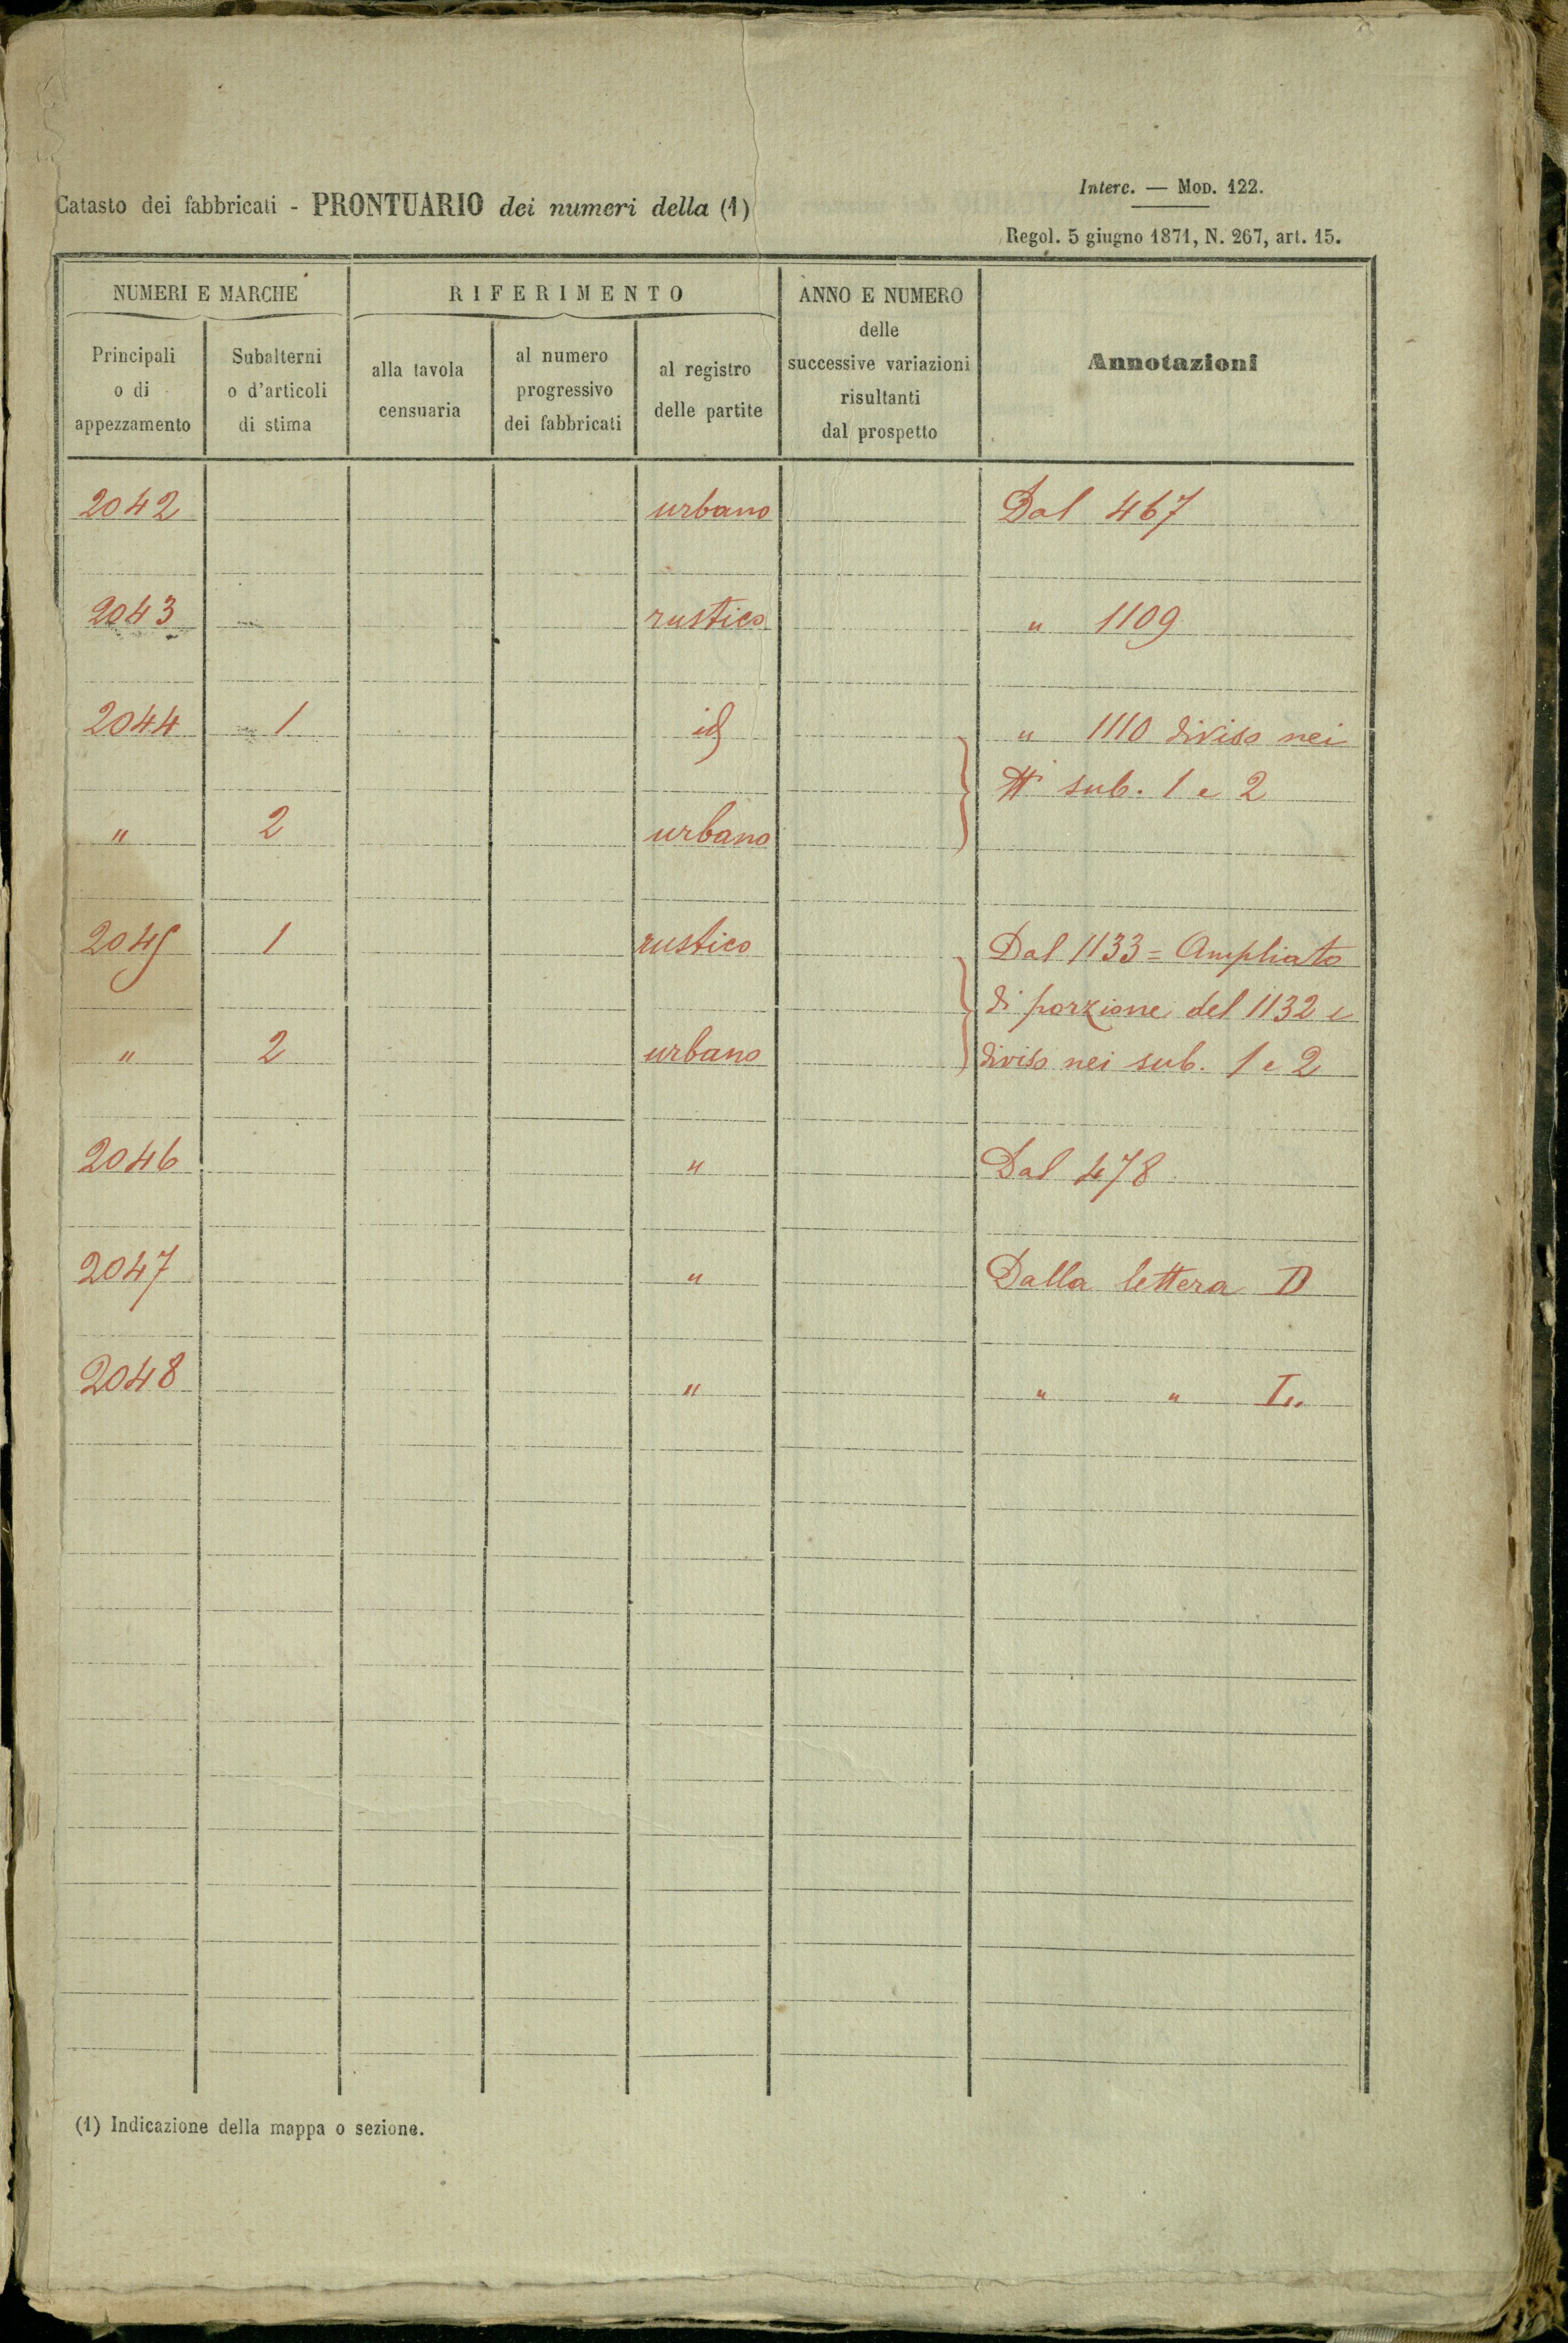 Interc. — Mod. 122.
Catasto dei fabbricati - PRONTUARIO dei numeri della (1)
Regol. 5 giugno 1871, N. 267, art. 15.
NUMERI E MARCHE
RIFERIMENTO
ANNO E NUMERO
delle
successive variazioni
risultanti
dal prospetto
Annotazioni
Principali
o di
appezzamento
Subalterni
o d'articoli
di stima
alla tavola
censuaria
al numero
progressivo
dei fabbricati
al registro
delle partite
2042 urbano Dal 467
2043 rustico " 1109
2044 1 id " 1110 diviso nei
sub. 1 e 2
" 2 urbano
2045 1 rustico Dal 1133 = Ampliato
di porzione del 1132 e
" 2 urbano diviso nei sub. 1 e 2
2046 " Dal 478
2047 " Dalla lettera D
2048 " " "
(1) Indicazione della mappa o sezione.